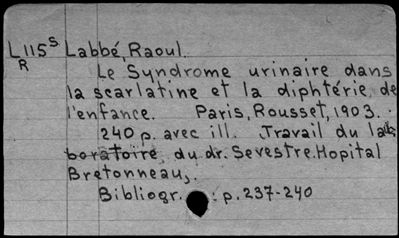 L115S Labbé, Raoul.
R
Le Syndrome urinaire dans
la scarlatine et la diphtérie de
l'enfance. Paris, Rousset, 1903.
240 p. avec ill. Travail du lab.
boratoire du dr. Sevestre. Hopital
Bretonneau,.
Bibliogr. : p. 237-240